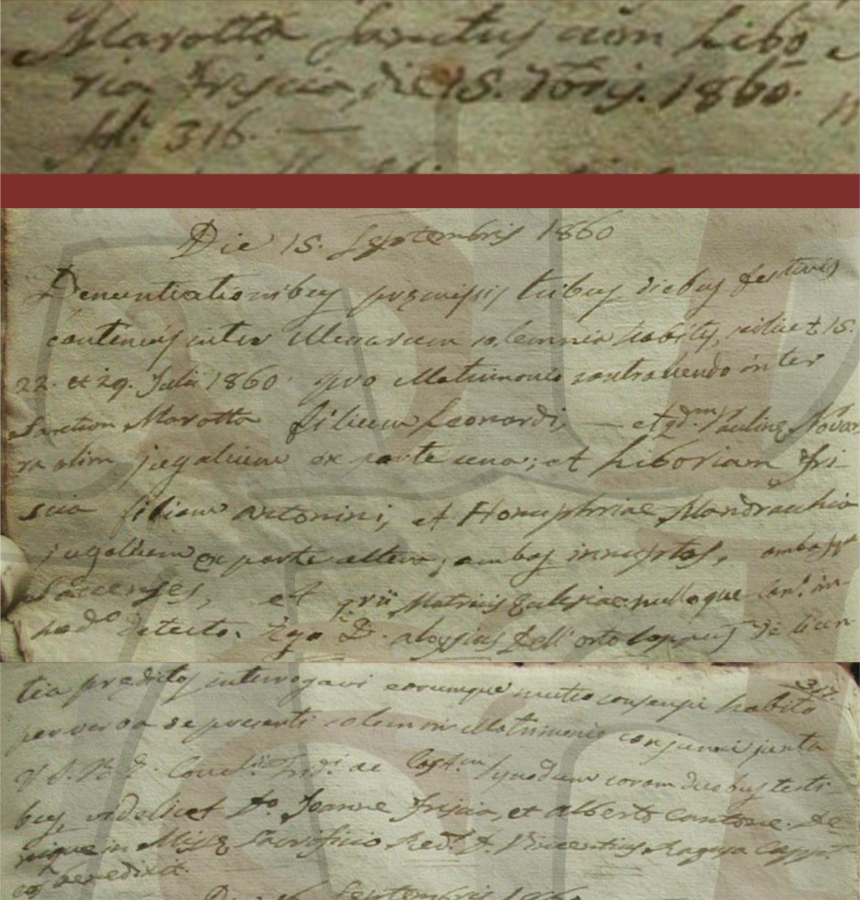 Marotta Sanctus cum Libo
ria Friscia, die 15. 7bris. 1860.
fol: 316. —
Die 15. Septembris 1860
Denuntiationibus premissis tribus diebus festivis
continuis inter Missarum solemnia habitis, scilicet 15.
22. et 29. Julii 1860. pro Matrimonio contrahendo inter
Sanctum Marotta filium Leonardi, — et qdm Pauline Navar
ra olim jugalium ex parte una; et Liboriam Fri
scia filiam Antonini, et Honuphriae Mandracchia
jugalium ex parte altera; ambos innuptos, ambos
Saccenses, et Matricis Ecclesiae nulloque Canco im-
pedo detecto. Ego D. Aloysius Dell'Orto Cappnus de licen
317.
tia preditus interrogavi eorumque mutuo consensu habito
per verba de presenti solemni Matrimonio conjunxi juxta
S. R. E. Synodum coram duobus testi
bus, videlicet Do Joanne Friscia, et Alberto Cantone. De
nique in Misse Sacrificio Red. D. Vincentius Ragusa Capps
eos benedixit.
Septembris 1860